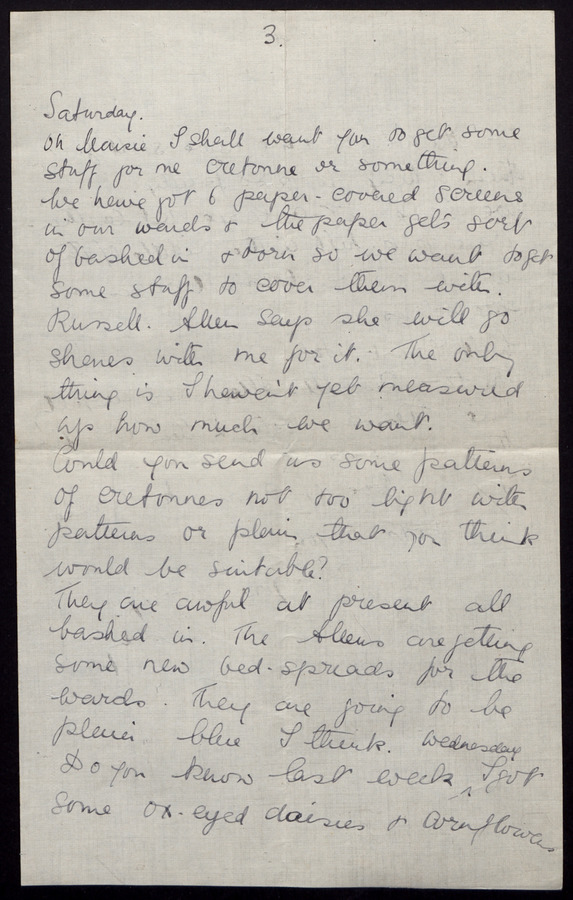 3.
Saturday.
Oh Maisie I shall want you to get some
stuff for me cretonne or something.
We have got 6 paper-covered screens
in our wards & the paper gets sort
of bashed in & torn so we want to get
some stuff to cover them with.
Russell. Allen says she will go
shares with me for it. The only
thing is I haven't yet measured
up how much we want.
Could you send us some patterns
of cretonnes not too light with
patterns or plain that you think
would be suitable?
They are awful at present all
bashed in. The Allens are getting
some new bed-spreads for the
wards. They are going to be
plain blue I think.
wednesday
Do you know last week ^ I got
some ox-eyed daisies & cornflowers